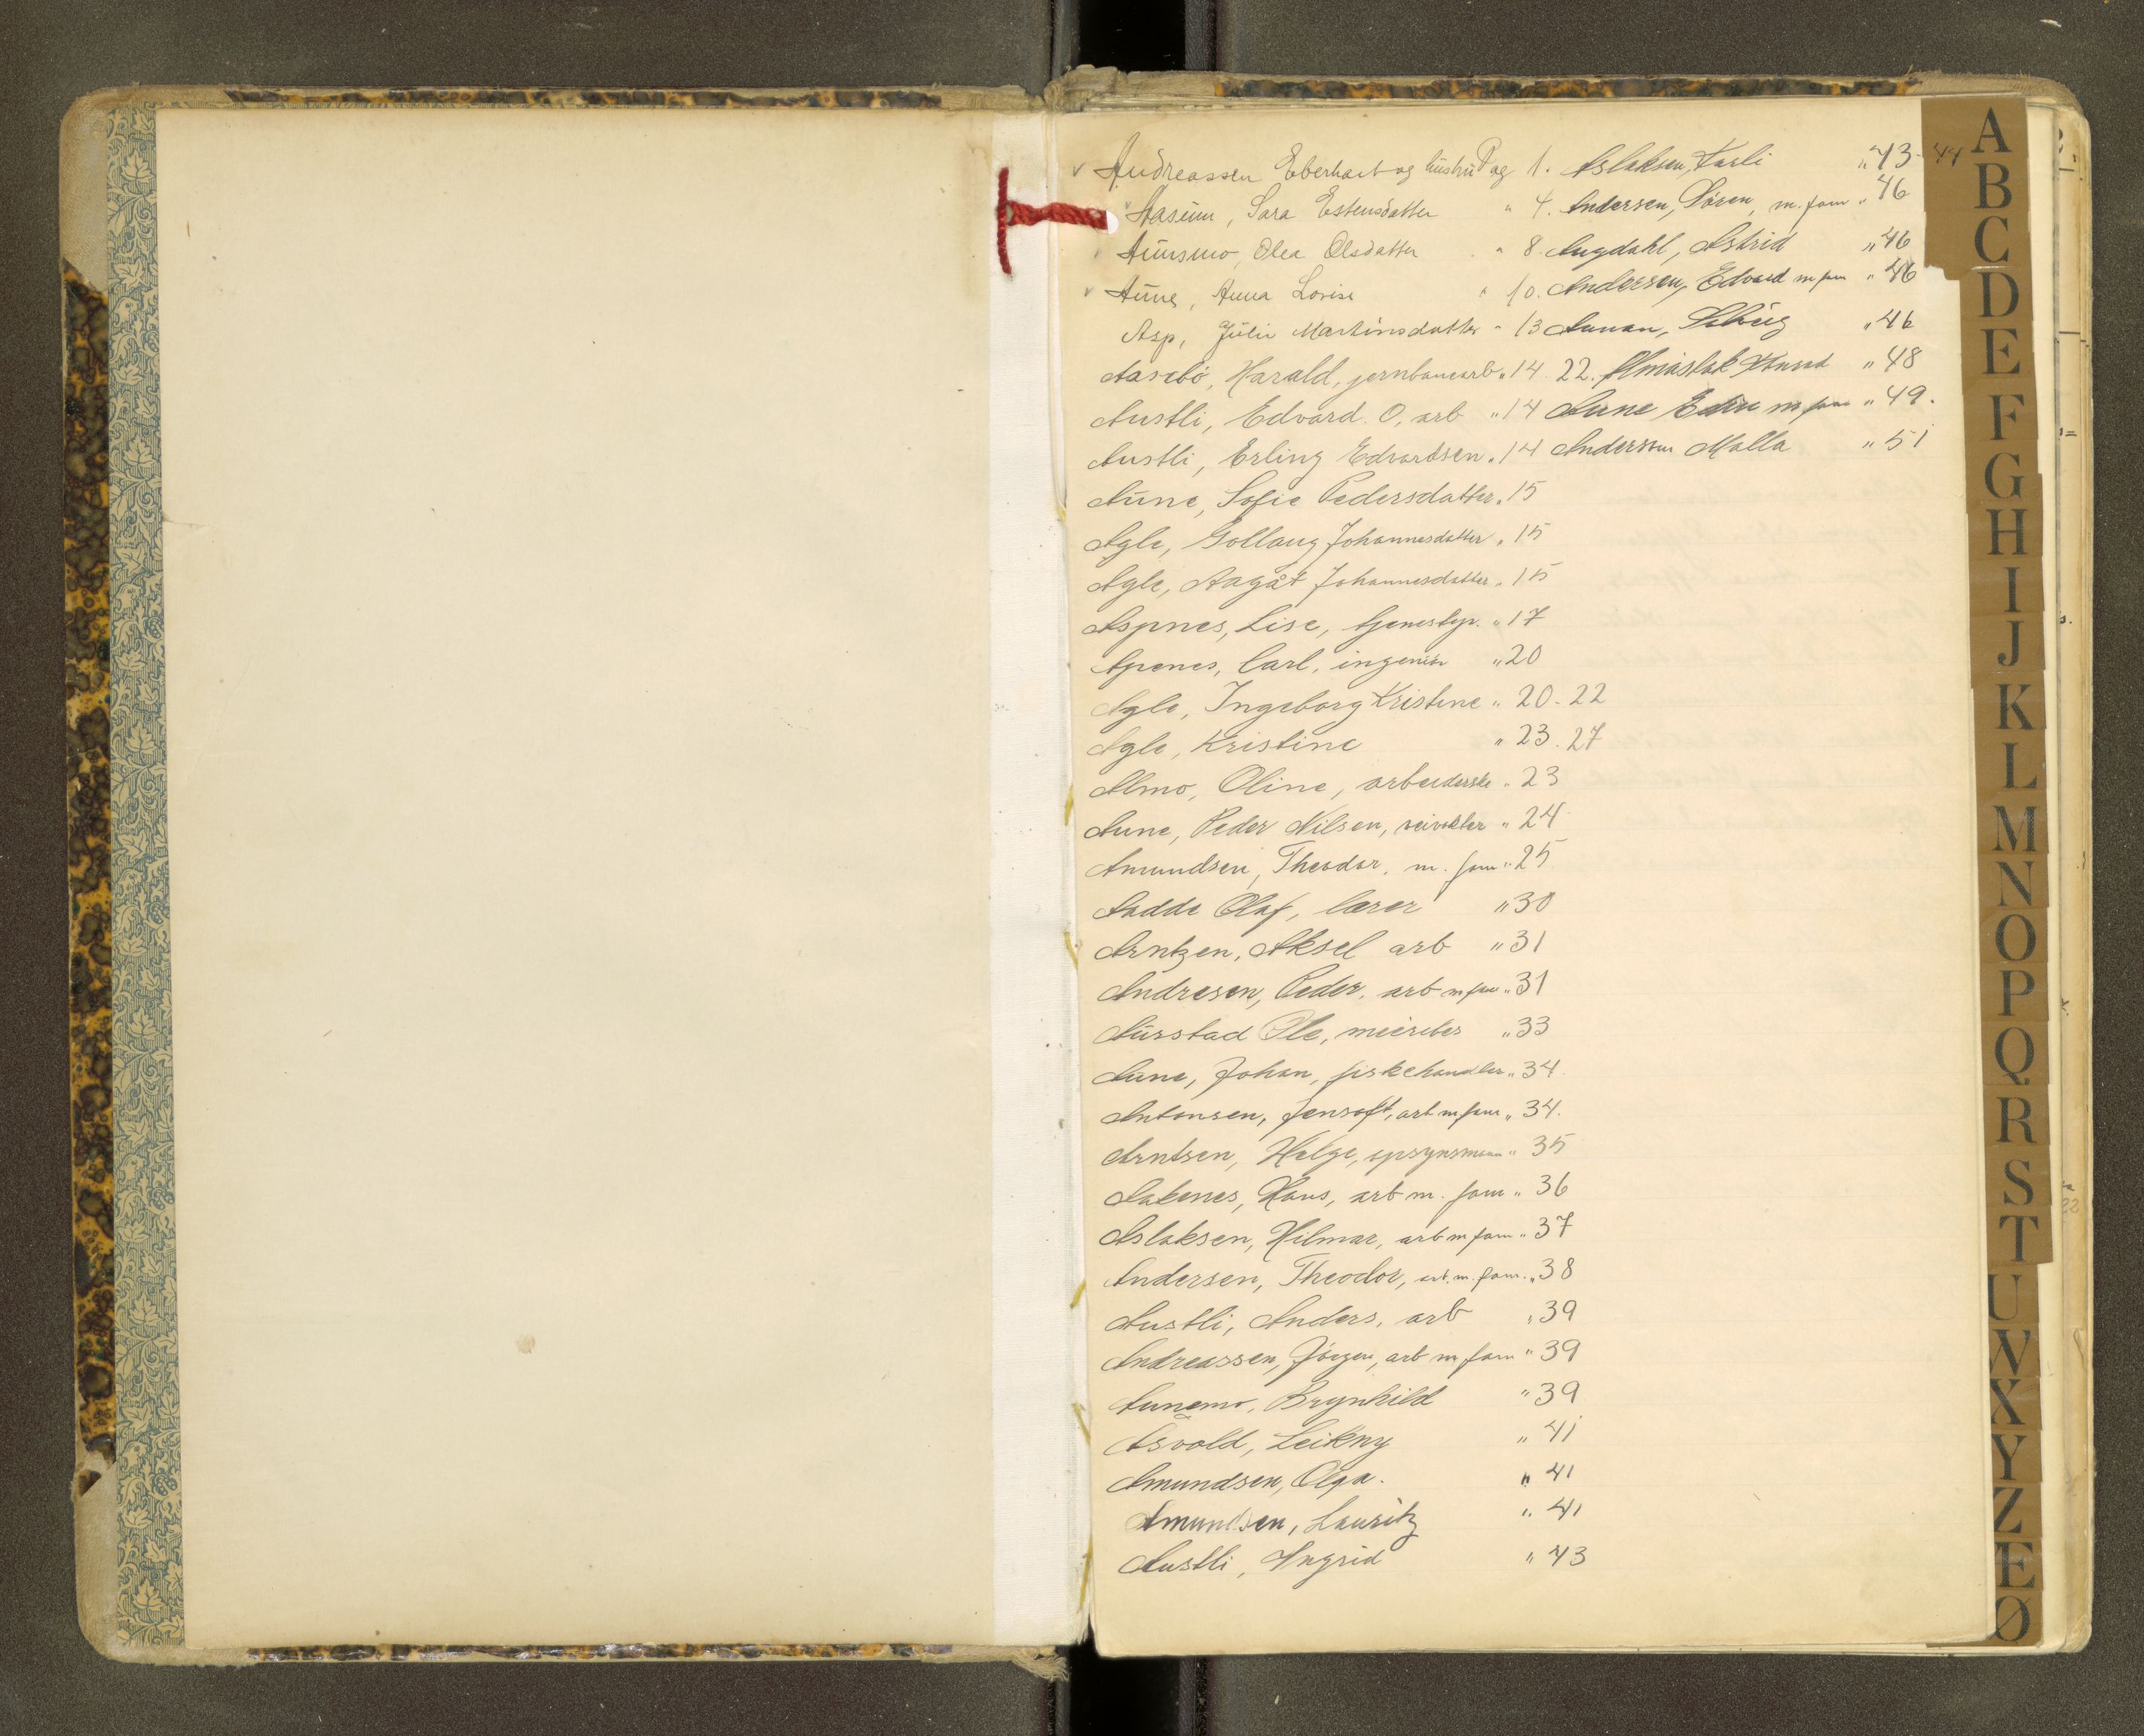 Andreassen Eberhart og hustru Pag 1.
Aasum, Sara Estensdatter " 4.
Aunsmo, Olea Olsdatter " 8.
Aune, Anna Lovise " 10.
Asp, Julie Martinsdatter " 13
Aasebö, Harald, jernbanearb. " 14. 22.
Austli, Edvard O, arb " 14
Austli, Erling Edvardsen " 14
Aune, Sofie Pedersdatter " 15
Agle, Gollaug Johannesdatter " 15
Agle, Aagåt Johannesdatter " 15
Aspnes, Lise, tjenestep. " 17
Apenes, Carl, ingeniör " 20
Agle, Ingeborg Kristine " 20-22
Agle, Kristine " 23. 27
Almo, Oline, arbeiderske " 23
Aune, Peder Nilsen, " 24
Amundsen, Theodor, m. fam " 25
Aadde Olaf, lærer " 30
Arntzen, Aksel arb " 31
Andresen, Peder, arb m fam " 31
Aurstad Ole, meieribes " 33
Aune, Johan, fiskehandler " 34.
Antonsen, Jensoft, arb m fam " 34.
Arntsen, Helge, opsynsmann " 35
Aakenes, Hans, arb m. fam " 36
Aslaksen, Hilmar, arb m fam " 37
Andersen, Theodor, arb. m. fam. " 38
Austli, Anders, arb " 39
Andreassen, Jörgen, arb m fam " 39
Aunemo, Brynhild " 39
Åsvold, Leikny " 41
Amundsen, Olga. " 41
Amundsen, Lauritz " 41
Austli, Ingrid " 43
Aslaksen, Karli " 43-44
Andersen, Sören, m. fam " 46
Augdahl, Astrid " 46
Andersen, Edvard m fam " 46
Aunan, Solveig " 46
Almåsbak Knud " 48
Aune Edin m fam " 49.
Anderson Malla " 51
A
B
C
D
E
F
G
H
I
J
K
L
M
N
O
P
Q
R
S
T
U
V
X
Y
Z
Æ
Ø